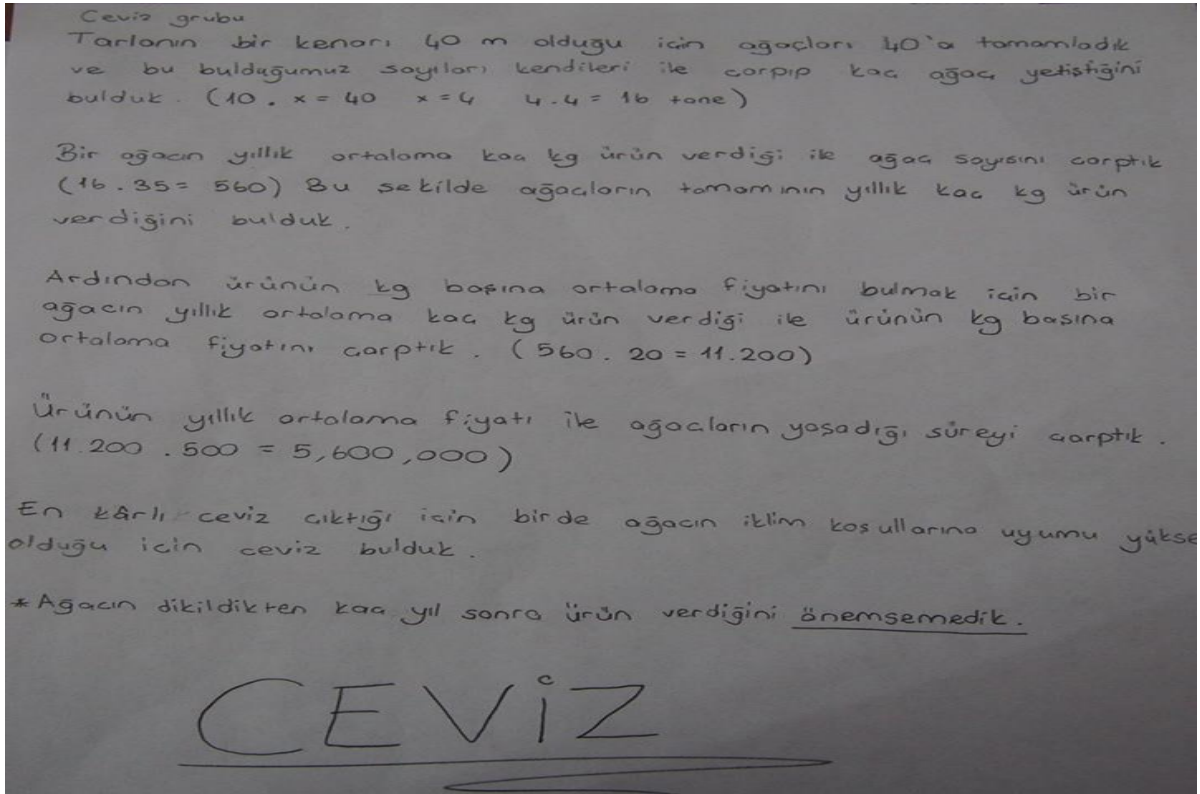 Ceviz grubu
Tarlanın bir kenarı 40 m olduğu için ağaçları 40'a tamamladık
ve bu bulduğumuz sayıları kendileri ile çarpıp kaç ağaç yetiştiğini
bulduk. (10 . x = 40 x = 4 4.4 = 16 tane)
Bir ağacın yıllık ortalama kaç kg ürün verdiği ile ağaç sayısını çarptık
(16 . 35 = 560) Bu şekilde ağaçların tamamının yıllık kaç kg ürün
verdiğini bulduk.
Ardından ürünün kg başına ortalama fiyatını bulmak için bir
ağacın yıllık ortalama kaç kg ürün verdiği ile ürünün kg başına
ortalama fiyatını çarptık. (560 . 20 = 11.200)
Ürünün yıllık ortalama fiyatı ile ağaçların yaşadığı süreyi çarptık.
(11.200 . 500 = 5,600,000)
En kârlı ceviz çıktığı için birde ağacın iklim koşullarına uyumu yükse
olduğu için ceviz bulduk.
* Ağacın dikildikten kaç yıl sonra ürün verdiğini önemsemedik.
CEVİZ